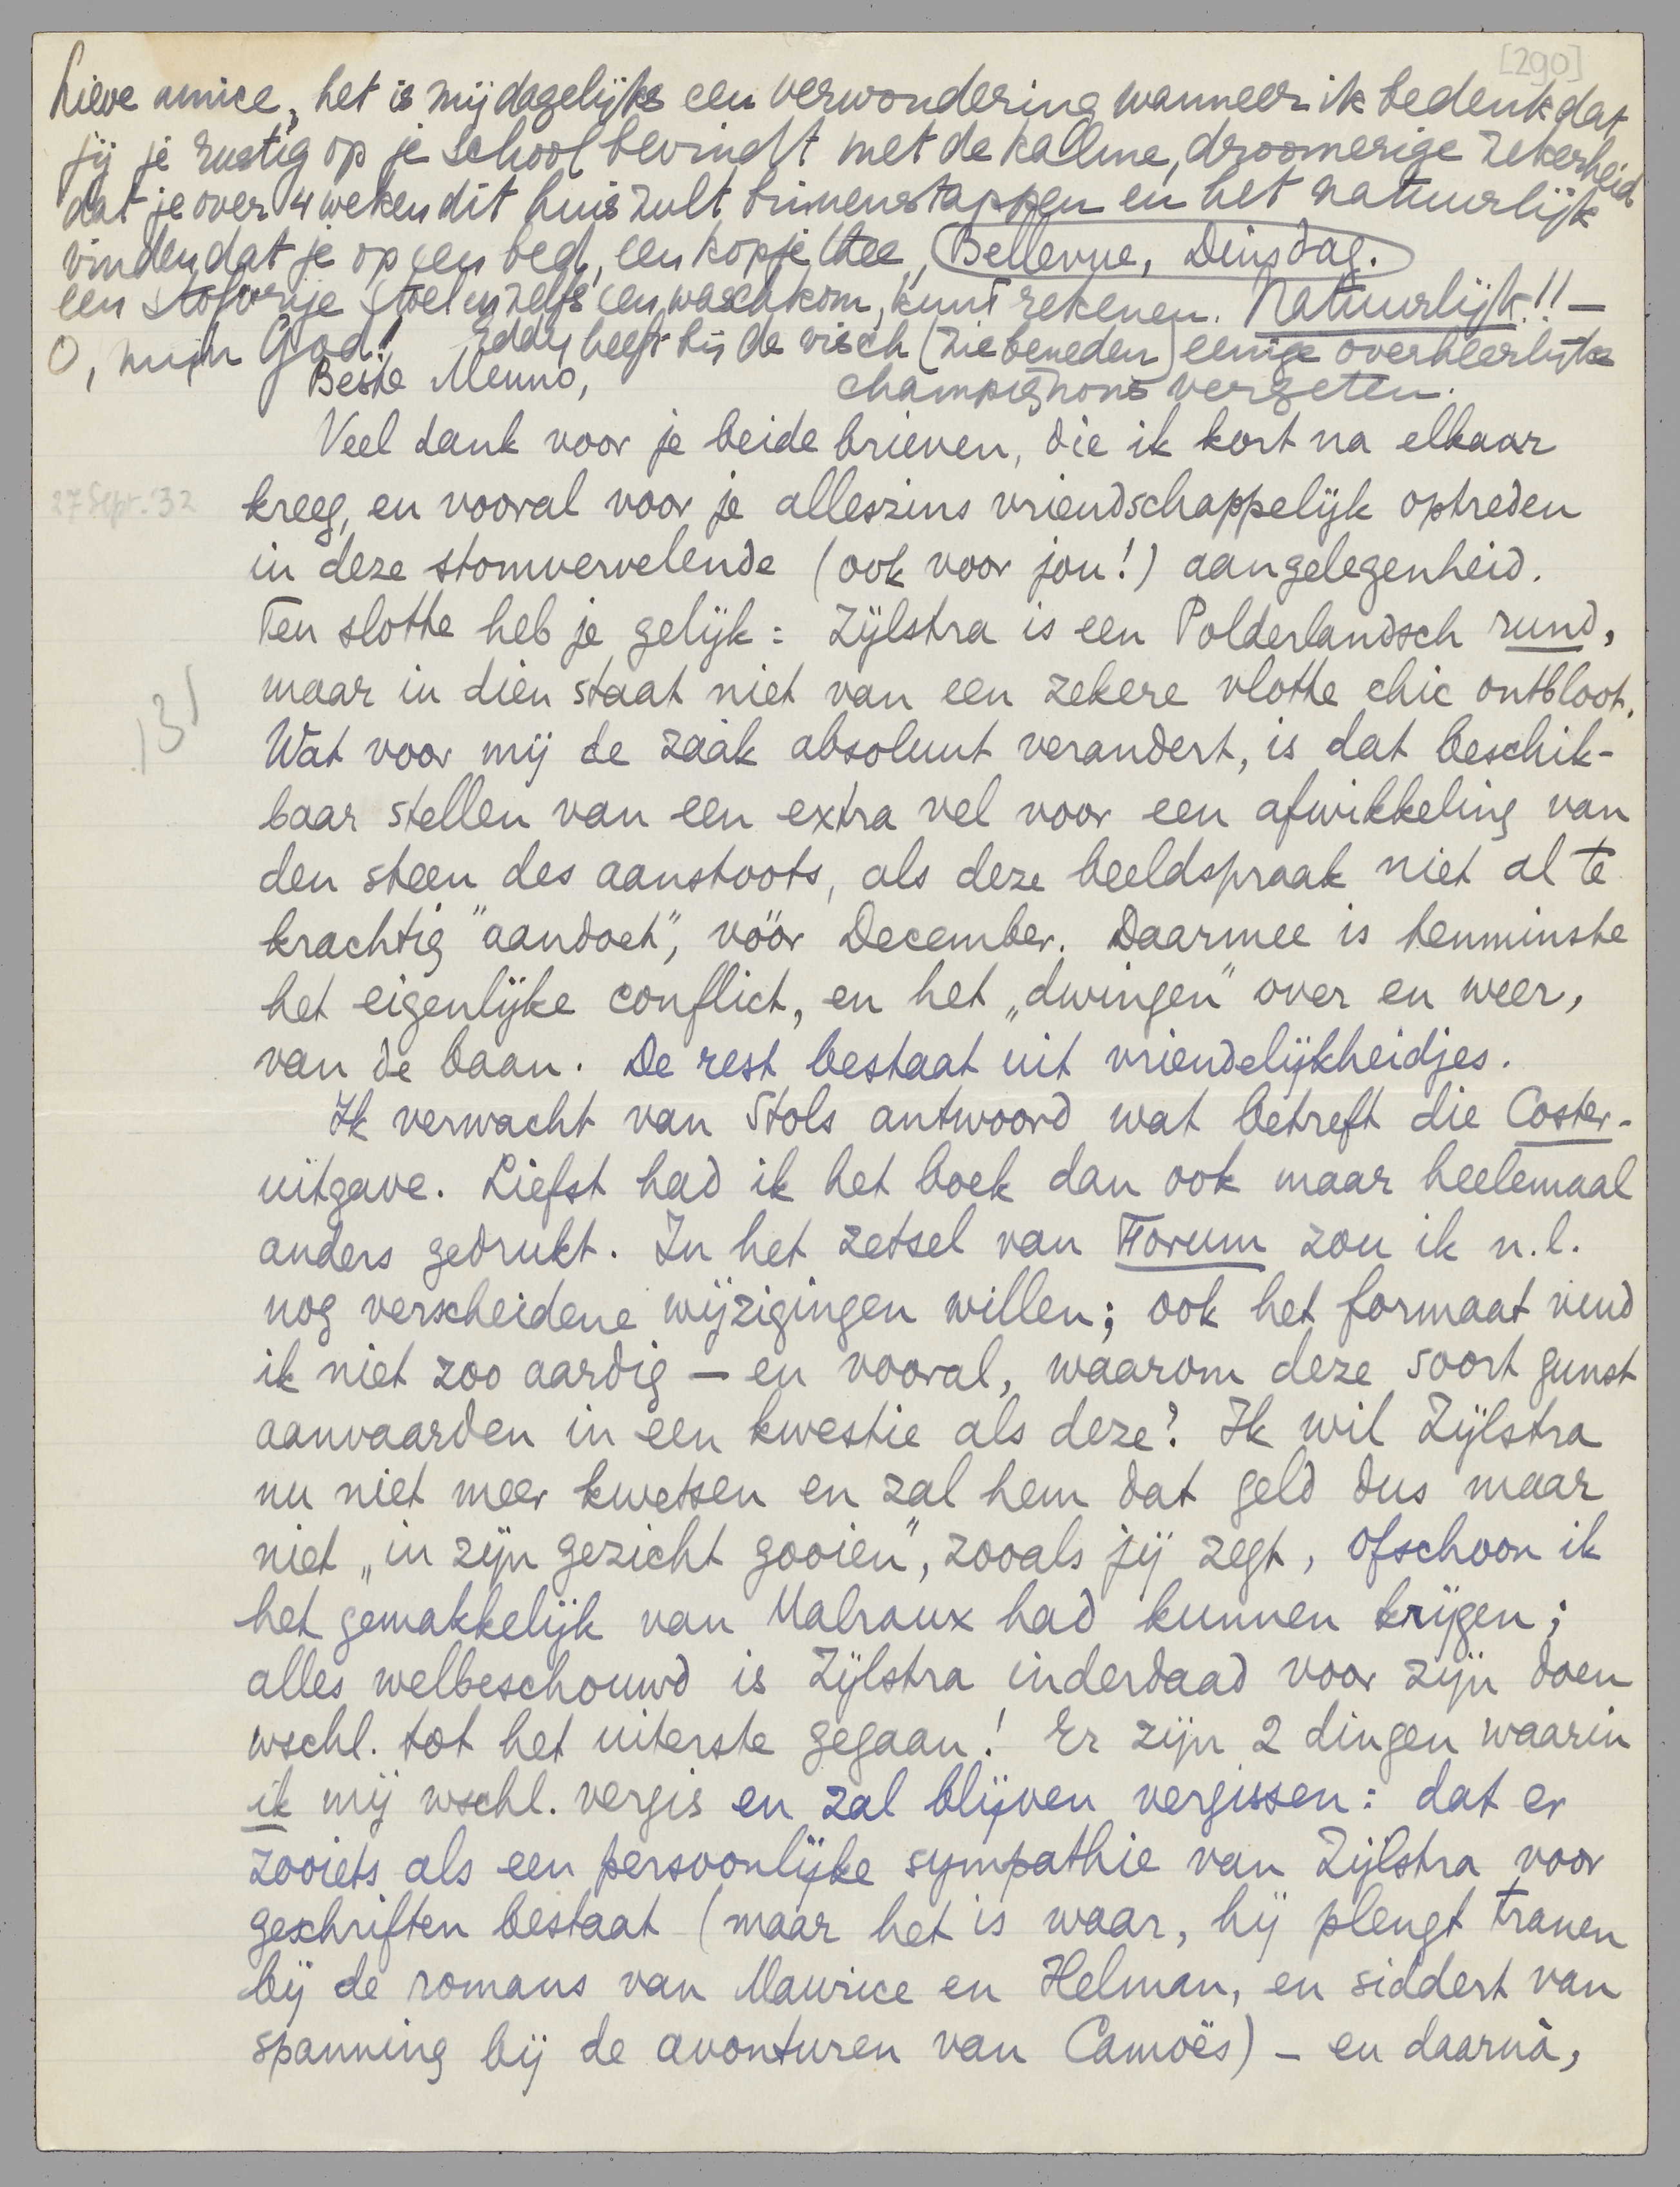 [290]
Lieve amice, het is mij dagelijks een verwondering wanneer ik bedenk dat
jij je rustig op je school bevindt met de kalme, droomerige zekerheid
dat je over 4 weken dit huis zult binnenstappen en het natuurlijk
vinden dat je op een bed, een kopje thee,
Bellevue, Dinsdag.
een stofvrije stoel en zelfs een waschkom, kunt rekenen. Natuurlijk!! —
O, mijn God! Eddy heeft bij de visch (zie beneden) eenige overheerlijke
champignons vergeten.
Beste Menno,
Veel dank voor je beide brieven, die ik kort na elkaar
27 Sept. '32
kreeg, en vooral voor je alleszins vriendschappelijk optreden
in deze stomvervelende (ook voor jou!) aangelegenheid.
Ten slotte heb je gelijk: Zijlstra is een Polderlandsch rund,
maar in dien staat niet van een zekere vlotte chic ontbloot.
131
Wat voor mij de zaak absoluut verandert, is dat beschik-
baar stellen van een extra vel voor een afwikkeling van
den steen des aanstoots, als deze beeldspraak niet al te
krachtig "aandoet", vóór December. Daarmee is tenminste
het eigenlijke conflict, en het „dwingen" over en weer,
van de baan. De rest bestaat uit vriendelijkheidjes.
Ik verwacht van Stols antwoord wat betreft die Coster-
uitgave. Liefst had ik het boek dan ook maar heelemaal
anders gedrukt. In het zetsel van Forum zou ik n.l.
nog verscheidene wijzigingen willen; ook het formaat vind
ik niet zoo aardig — en vooral, waarom deze soort gunst
aanvaarden in een kwestie als deze? Ik wil Zijlstra
nu niet meer kwetsen en zal hem dat geld dus maar
niet „in zijn gezicht gooien", zooals jij zegt, ofschoon ik
het gemakkelijk van Malraux had kunnen krijgen;
alles welbeschouwd is Zijlstra inderdaad voor zijn doen
wschl. tot het uiterste gegaan! Er zijn 2 dingen waarin
ik mij wschl. vergis en zal blijven vergissen: dat er
zooiets als een persoonlijke sympathie van Zijlstra voor
geschriften bestaat (maar het is waar, hij plengt tranen
bij de romans van Maurice en Helman, en siddert van
spanning bij de avonturen van Camoës) — en daarnà,